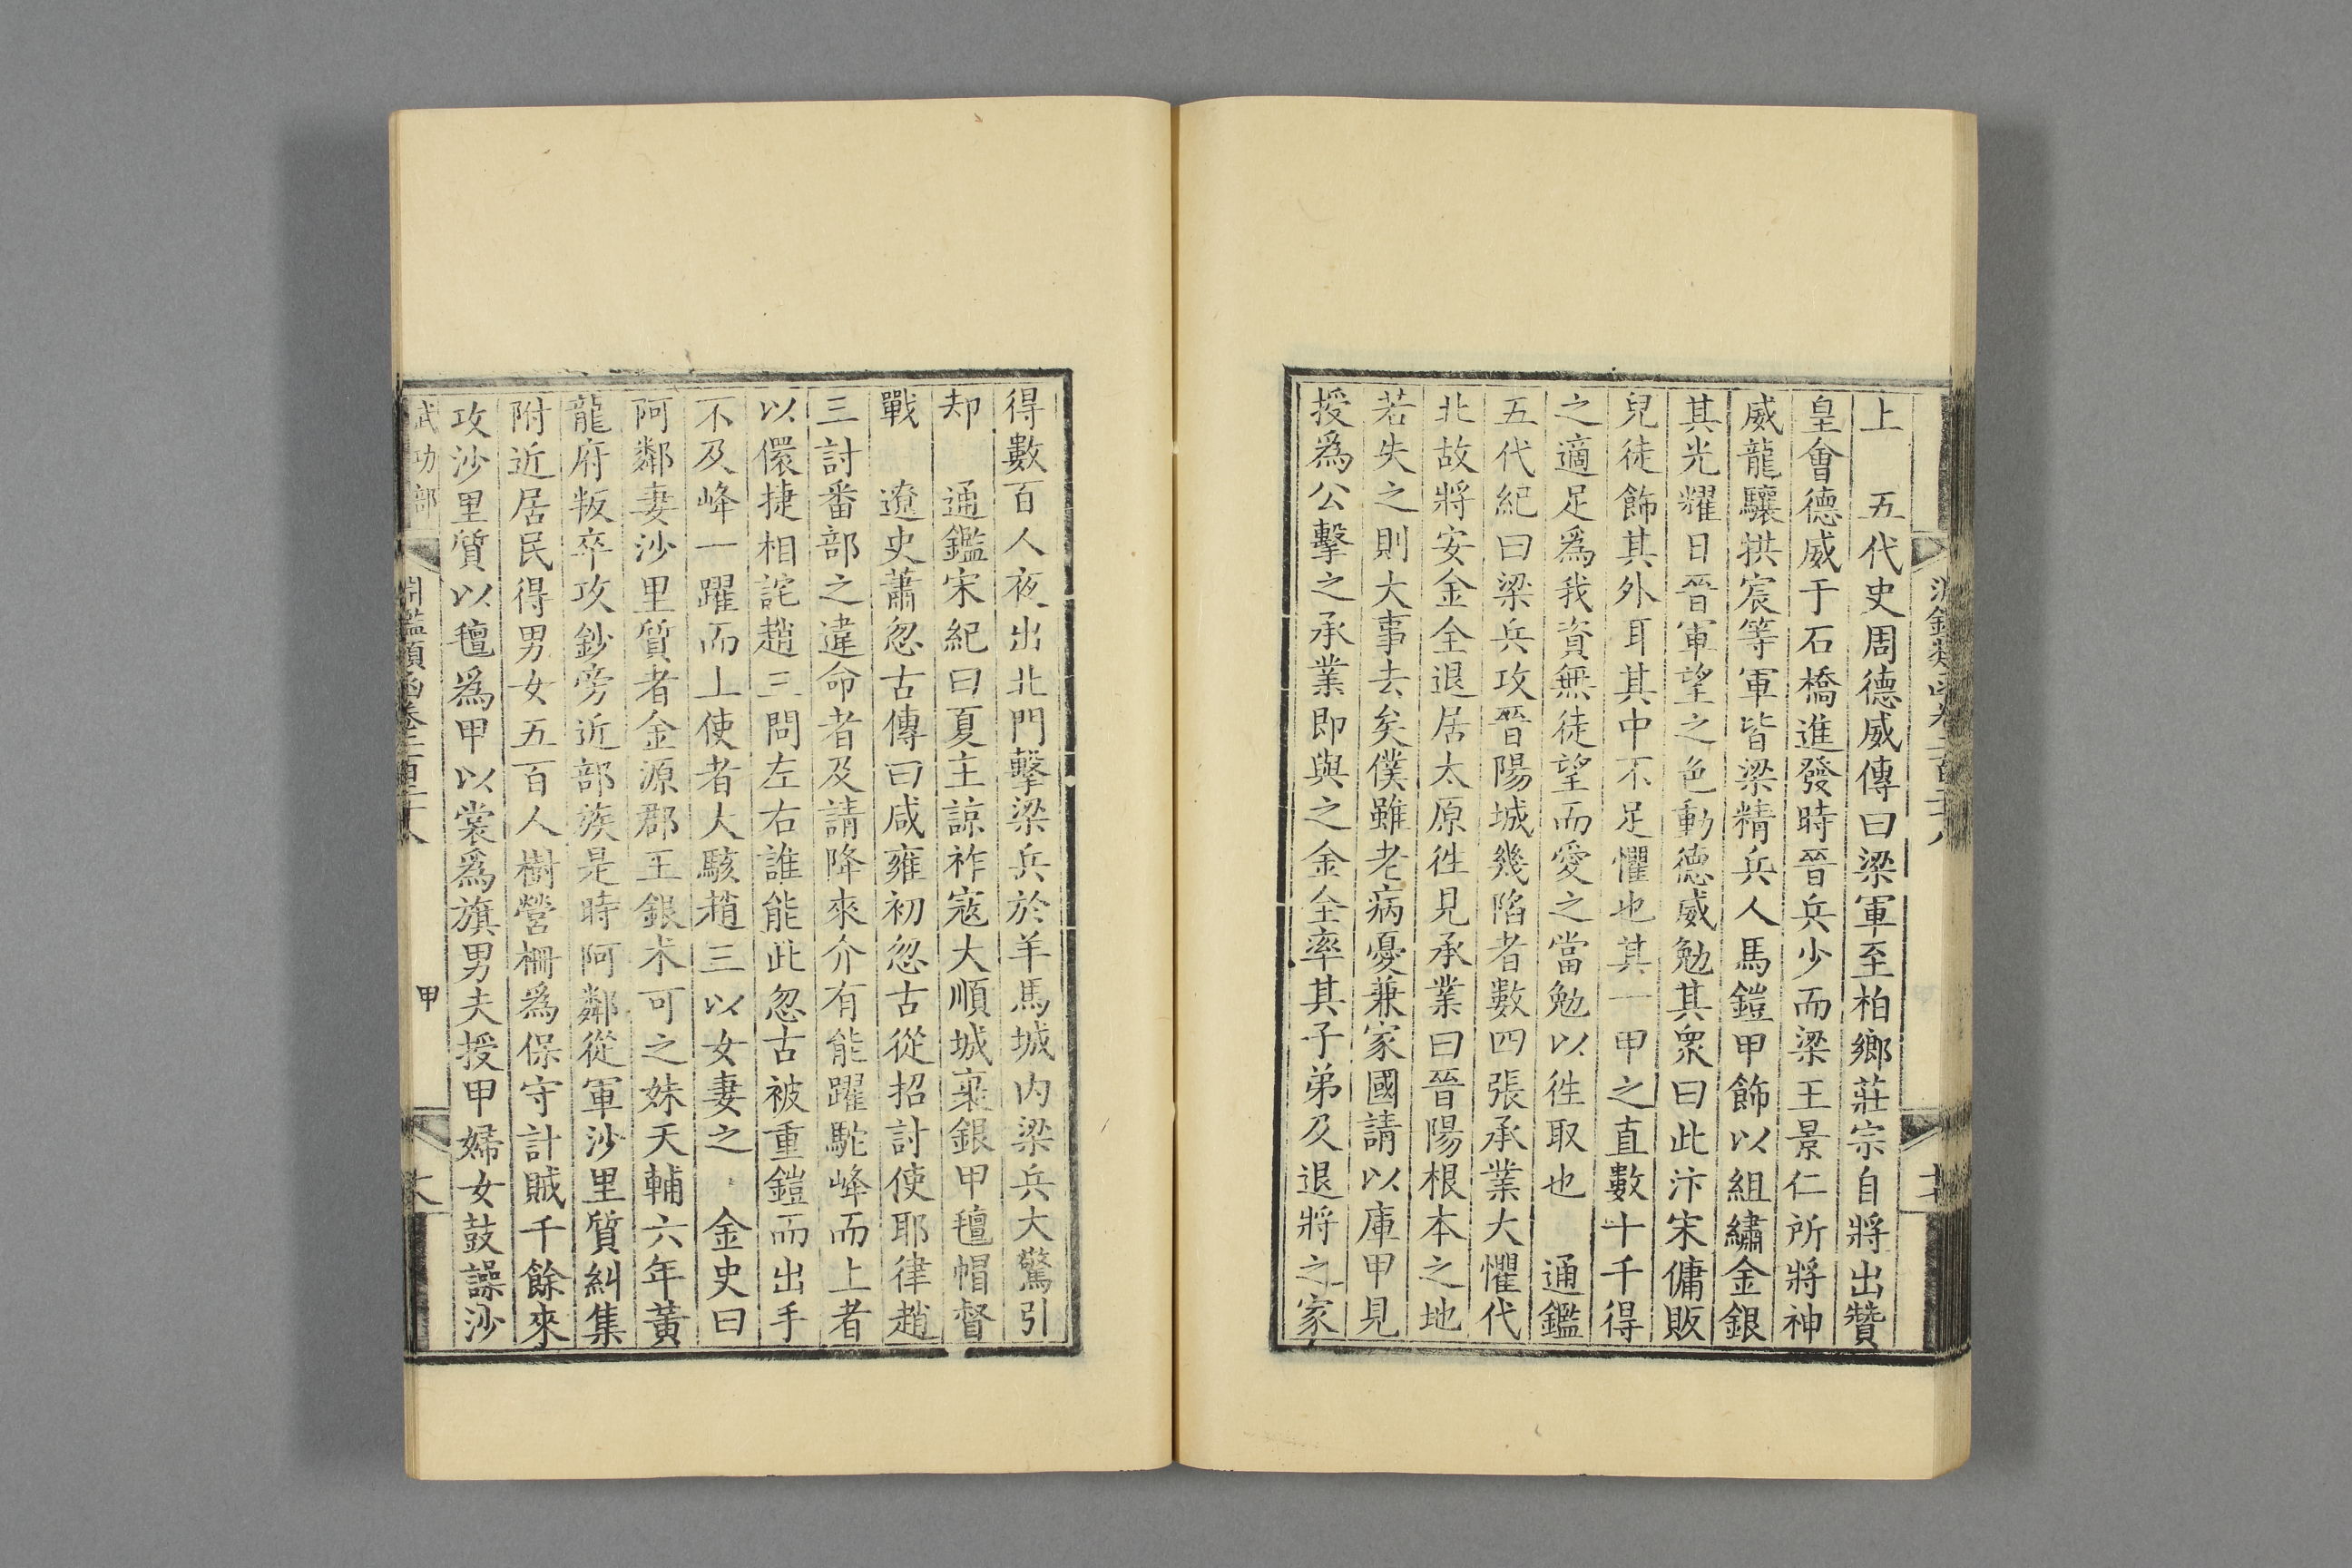 上　五代史周德威傳曰梁軍至柏鄉莊宗自將出贊
皇會德威于石橋進發時晉兵少而梁王景仁所將神
威龍驤拱宸等軍皆梁精兵人馬鎧甲飾以組繡金銀
其光耀日晉軍望之色動德威勉其衆曰此汴宋傭販
兒徒飾其外耳其中不足懼也其一甲之直數十千得
之適足爲我資無徒望而愛之當勉以徃取也　通鑑
五代紀曰梁兵攻晉陽城幾陷者數四張承業大懼代
北故將安金全退居太原徃見承業曰晉陽根本之地
若失之則大事去矣僕雖老病憂兼家國請以庫甲見
授爲公擊之承業即與之金全率其子弟及退將之家
得數百人夜出北門擊梁兵於羊馬城内梁兵大驚引
却　通鑑宋紀曰夏主諒祚宼大順城裹銀甲氊帽督
戰　遼史蕭忽古傳曰咸雍初忽古從招討使耶律趙
三討番部之違命者及請降來介有能躍駝峰而上者
以儇捷相詫趙三問左右誰能此忽古被重鎧而出手
不及峰一躍而上使者大駭趙三以女妻之　金史曰
阿鄰妻沙里質者金源郡王銀术可之妹天輔六年黃
龍府叛卒攻鈔旁近部族是時阿鄰從軍沙里質糾集
附近居民得男女五百人樹營栅爲保守計賊千餘來
攻沙里質以氊爲甲以裳爲旗男夫授甲婦女鼓譟沙
武功部　淵鑑類函卷二百二十八　甲